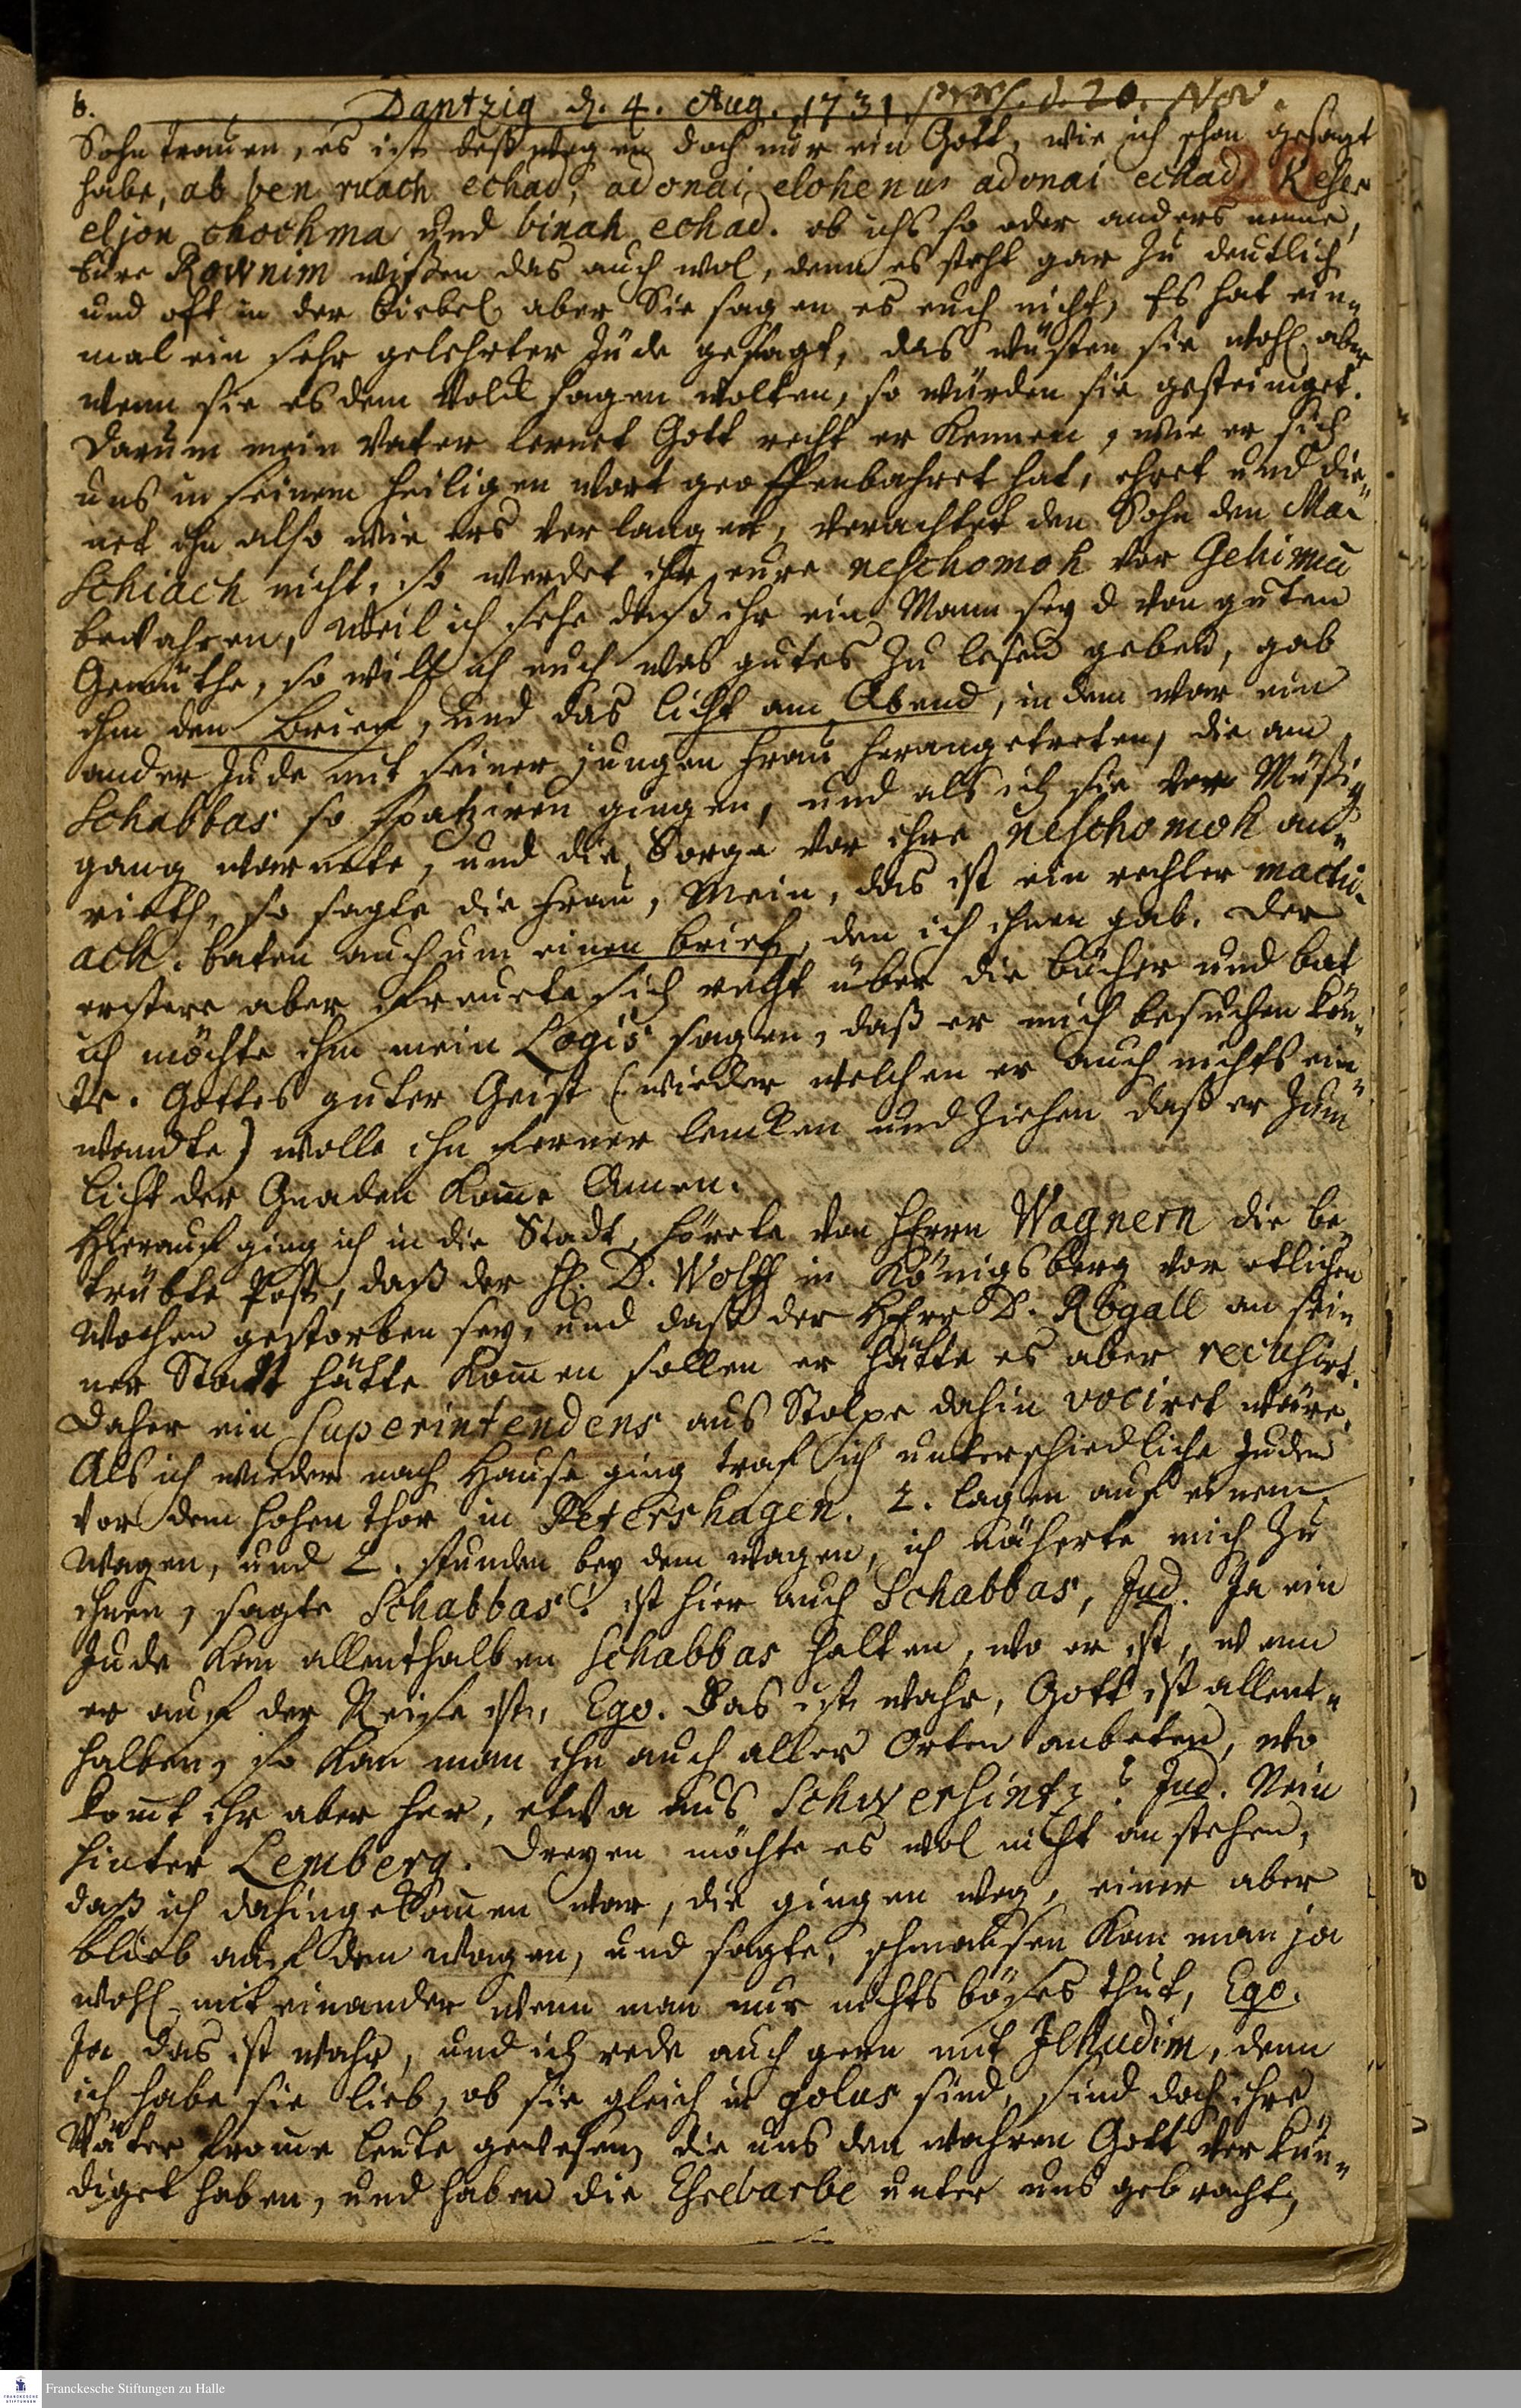 6. Dantzig d. 4. Aug. 1731. præs. d. 20. Nov.
20
Sohn trauen, es ist deßwegen doch nur ein Gott, wie ich schon gesagt
habe, ab ben ruach echad, adonai elohenu adonai echad, Keser
eljon chochma und binah echad. ob ichs so oder anders nenne,
Eure Rownim wißen das auch wol, denn es steht gar zu deutlich
und oft in der Biebel, aber Sie sagen es euch nicht, Es hat ein„
mal ein sehr gelehrter Jude gesagt, das wüsten sie wohl, aber
wenn sie es dem Volck sagen wolten, so würden sie gesteiniget.
Darum mein Vater lernet Gott recht erkennen, wie er sich
uns in seinem heiligen Wort geoffenbahret hat, ehret und die„
net ihn also wie ers verlanget, verachtet den Sohn den Ma„
schiach nicht, so werdet ihr eure neschomoh vor Gehinnū
bewahren, Weil ich sehe daß ihr ein Mann seyd von guten
Gemüthe, so will ich euch was gutes zu lesen geben, gab
ihm den Brief, und das Licht am Abend, in dem war ein
ander Jude mit seiner jungen Frau herangetreten, die am
Schabbas so spatziren gingen, und als ich sie vor Müßig
gang warnete, und die Sorge vor ihre neschomoh an„
rieth, so sagte die Frau, Mein, das ist ein rechter machi„
ach. baten auch um einen Brief, den ich ihnen gab. Der
erstere aber freuete sich recht über die Bücher und bat
ich möchte ihm mein Logis sagen, daß er mich besuchen kön„
te. Gottes guter Geist (wieder welchen er auch nichts ein„
wandte) wolle ihn ferner lencken und ziehen daß er zum
Licht der Gnaden kom̄e Amen.
Hierauf ging ich in die Stadt, hörete von Herrn Wagnern die be„
trübte Post, daß der H. D. Wolff in Königsberg vor etlichen
Wochen gestorben sey, und daß der Herr D. Rogall an sei„
ner Statt hätte kom̄en sollen er hätte es aber recusirt.
Daher ein Superintendens aus Stolpe dahin vociret wäre.
Als ich wieder nach Hause ging traf ich unterschiedliche Juden
vor dem hohen Thor in Petershagen. 2. lagen auf einem
Wagen, und 2. stunden bey dem Wagen, ich näherte mich zu
ihnen, sagte Schabbas! ist hier auch Schabbas, Jud. Ja ein
Jude kan allenthalben Schabbas halten, wo er ist, wenn
er auf der Reise ist, Ego. Das ist wahr, Gott ist allent„
halben, so kan man ihn auch aller Orten anbeten, wo
kom̄t ihr aber her, etwa aus Schwersintz? Jud. Nein
hinter Lemberg. Dreyen möchte es wol nicht anstehen,
daß ich dahingekom̄en war, die gingen weg, einer aber
blieb auf dem Wagen, und sagte, schmausen kan man ja
wohl miteinander wenn man nur nichts böses thut, Ego.
Ja das ist wahr, und ich rede auch gern mit Jehudim, denn
ich habe sie lieb, ob sie gleich in golus sind, sind doch ihre
Väter from̄e Leute gewesen, die uns den wahren Gott verkün„
diget haben, und haben die Esrebarbe unter uns gebracht,
FRANCKESCHE STIFTUNGEN
Franckesche Stiftungen zu Halle